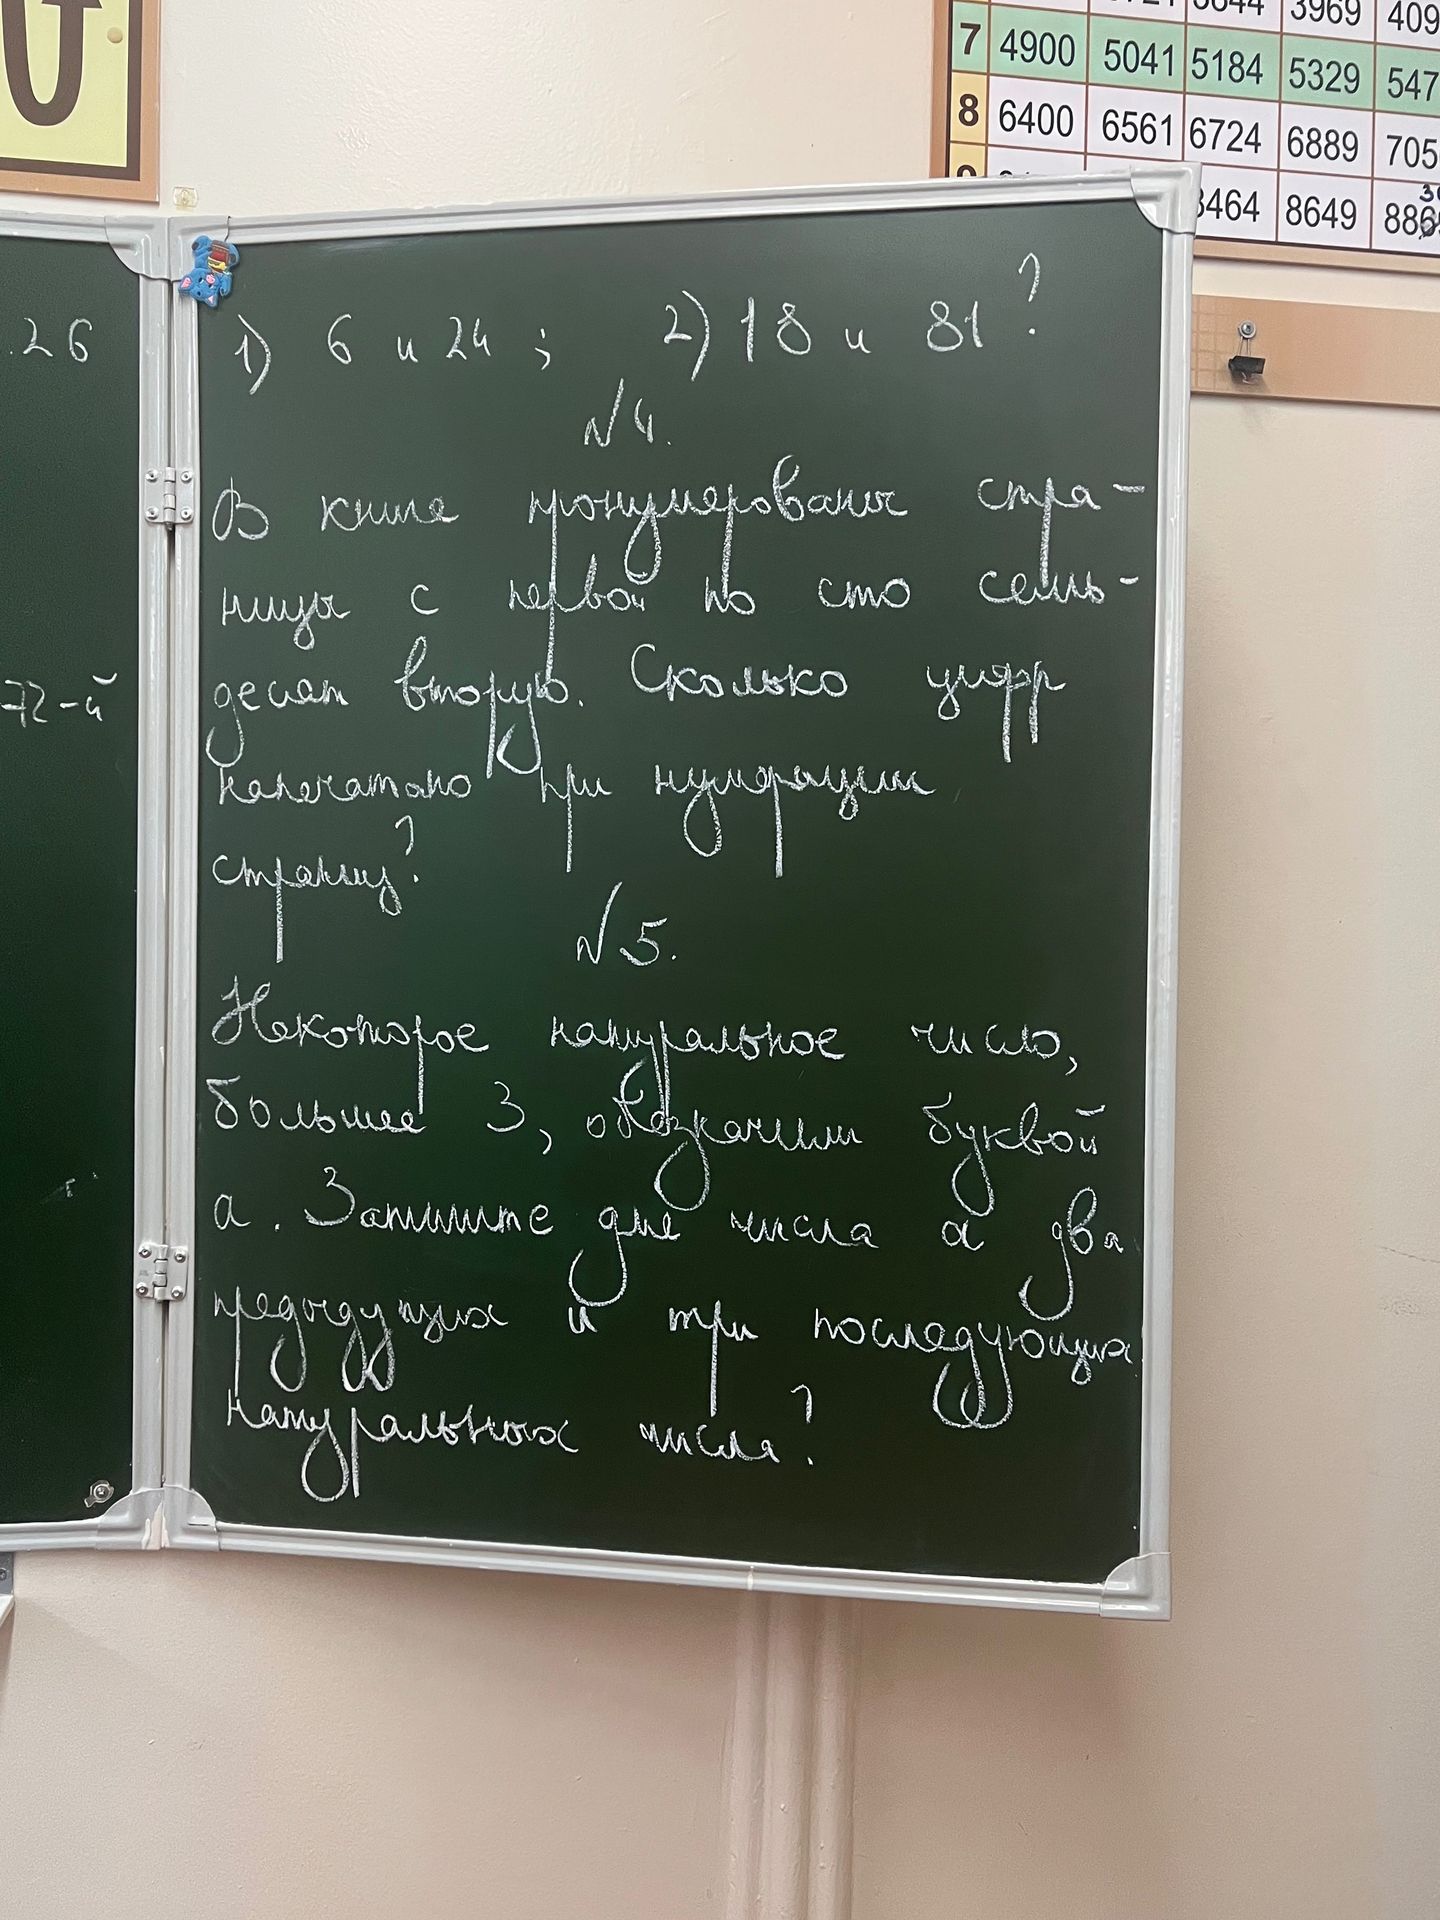 3721 3844 3969 409
7 4900 5041 5184 5329 547
8 6400 6561 6724 6889 705
9 8464 8649 88
.26
72-й
1) 6 и 24; 2) 18 и 81?
№4.
В книге пронумерованы стра-
ницы с первой по сто семь-
десят вторую. Сколько цифр
напечатано при нумерации
страниц?
№5.
Некоторое натуральное число,
большее 3, обозначим буквой
a. Запишите для числа a два
предыдущих и три последующих
натуральных числа?